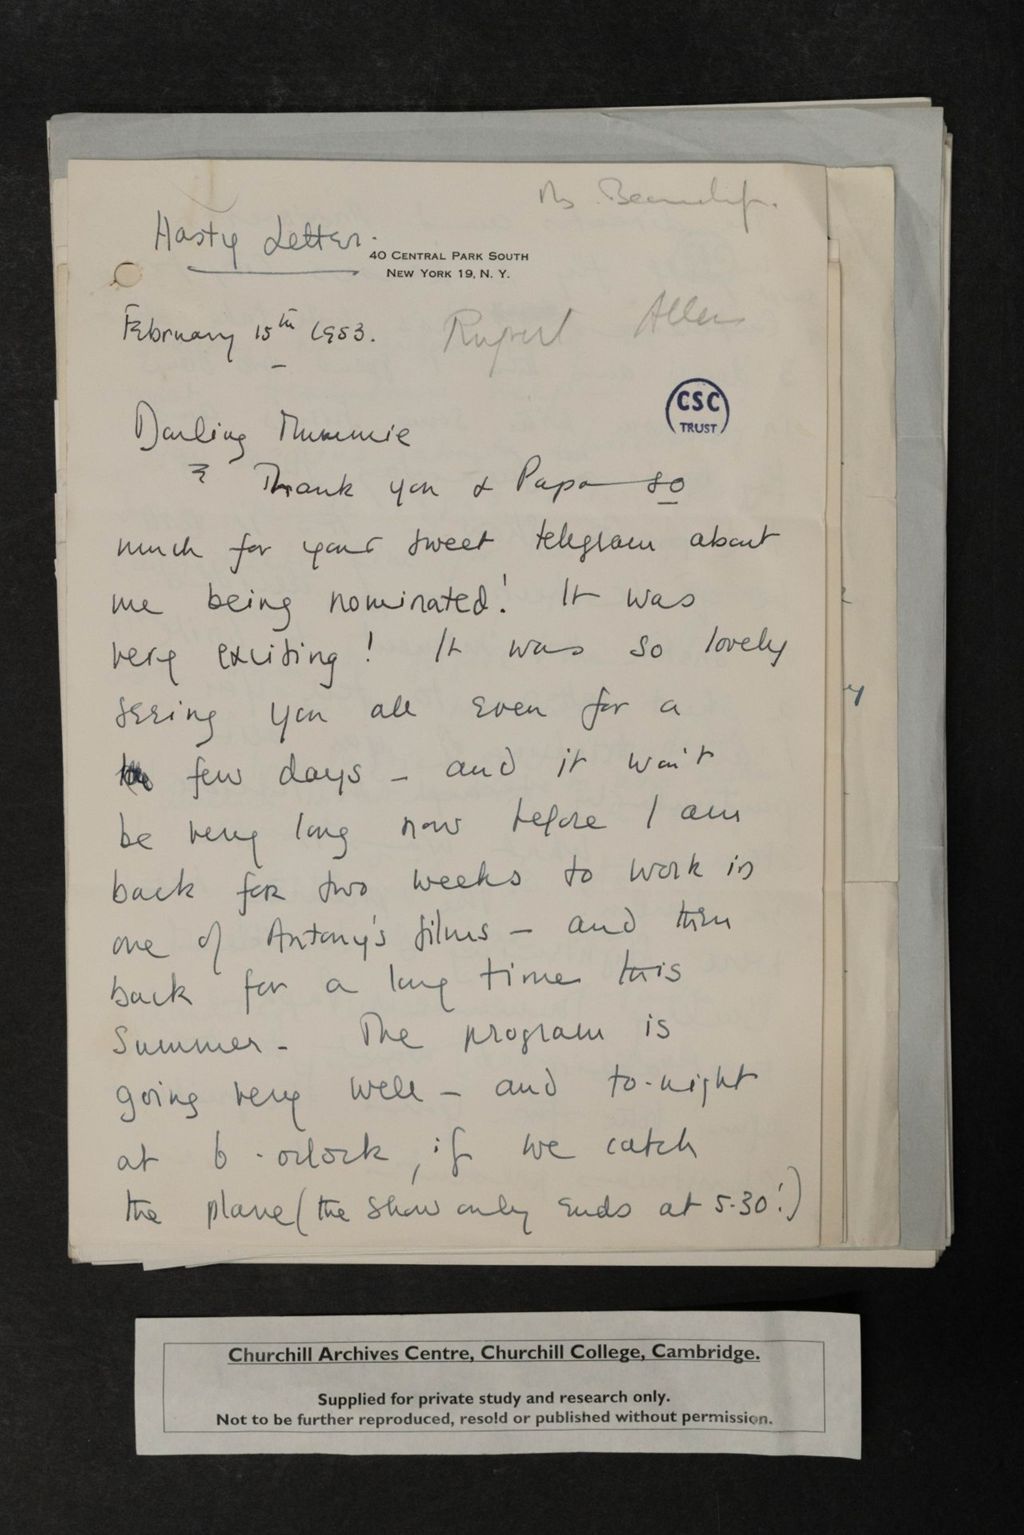 Hasty Letter.
40 CENTRAL PARK SOUTH
NEW YORK 19, N. Y.
February 15th 1953.
Rupert Allen
CSC
TRUST
Darling Mummie
Thank you & Papa so
much for your sweet telegram about
me being nominated! It was
very exciting! It was so lovely
seeing you all even for a
few days - and it won't
be very long now before I am
back for two weeks to work in
one of Antony's films - and then
back for a long time this
Summer - The program is
going very well - and to-night
at 6 - o'clock, if we catch
the plane (the show only ends at 5-30!)
y
Churchill Archives Centre, Churchill College, Cambridge.
Supplied for private study and research only.
Not to be further reproduced, resold or published without permission.